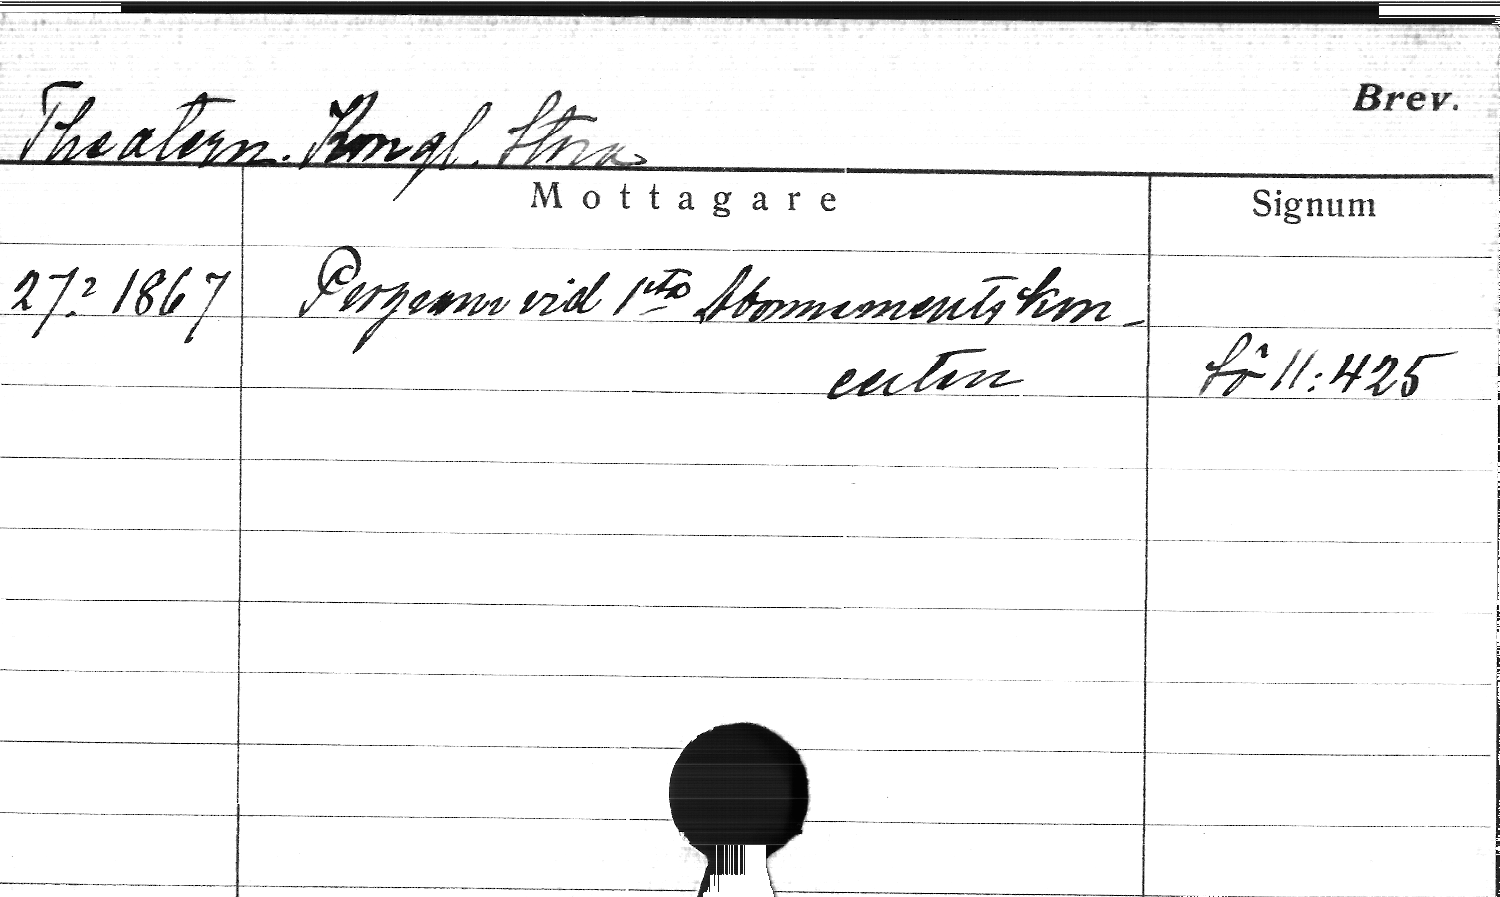 Brev.
Theatern. Kongl. Stora
Mottagare
Signum
27/2 1867
Pergami vid 1sta Abonnementskon-
certen
Lö 11:425